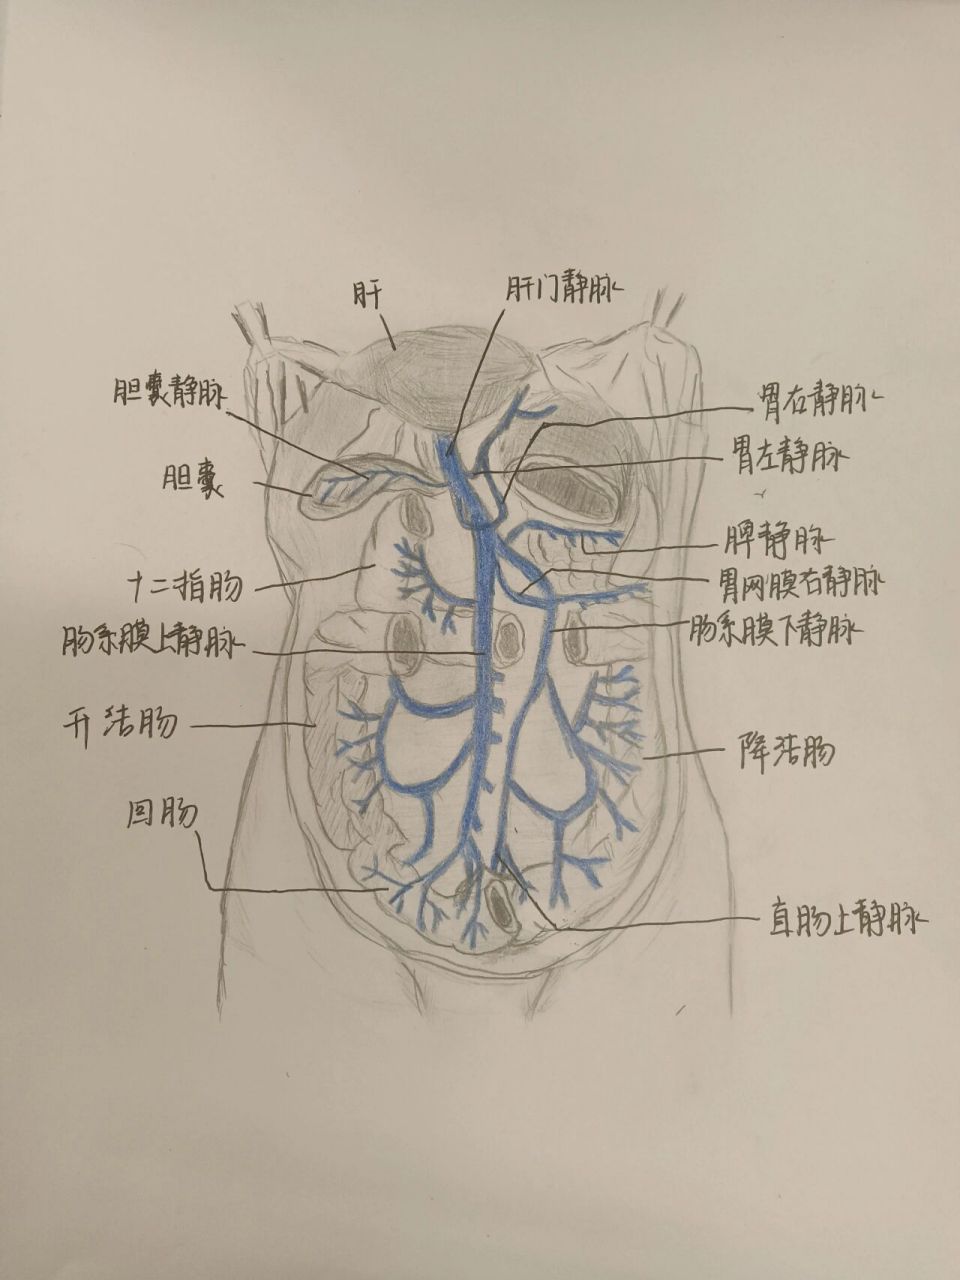 肝
肝门静脉
胆囊静脉
胃右静脉
胃左静脉
胆囊
脾静脉
十二指肠
胃网膜右静脉
肠系膜上静脉
肠系膜下静脉
升结肠
降结肠
回肠
直肠上静脉